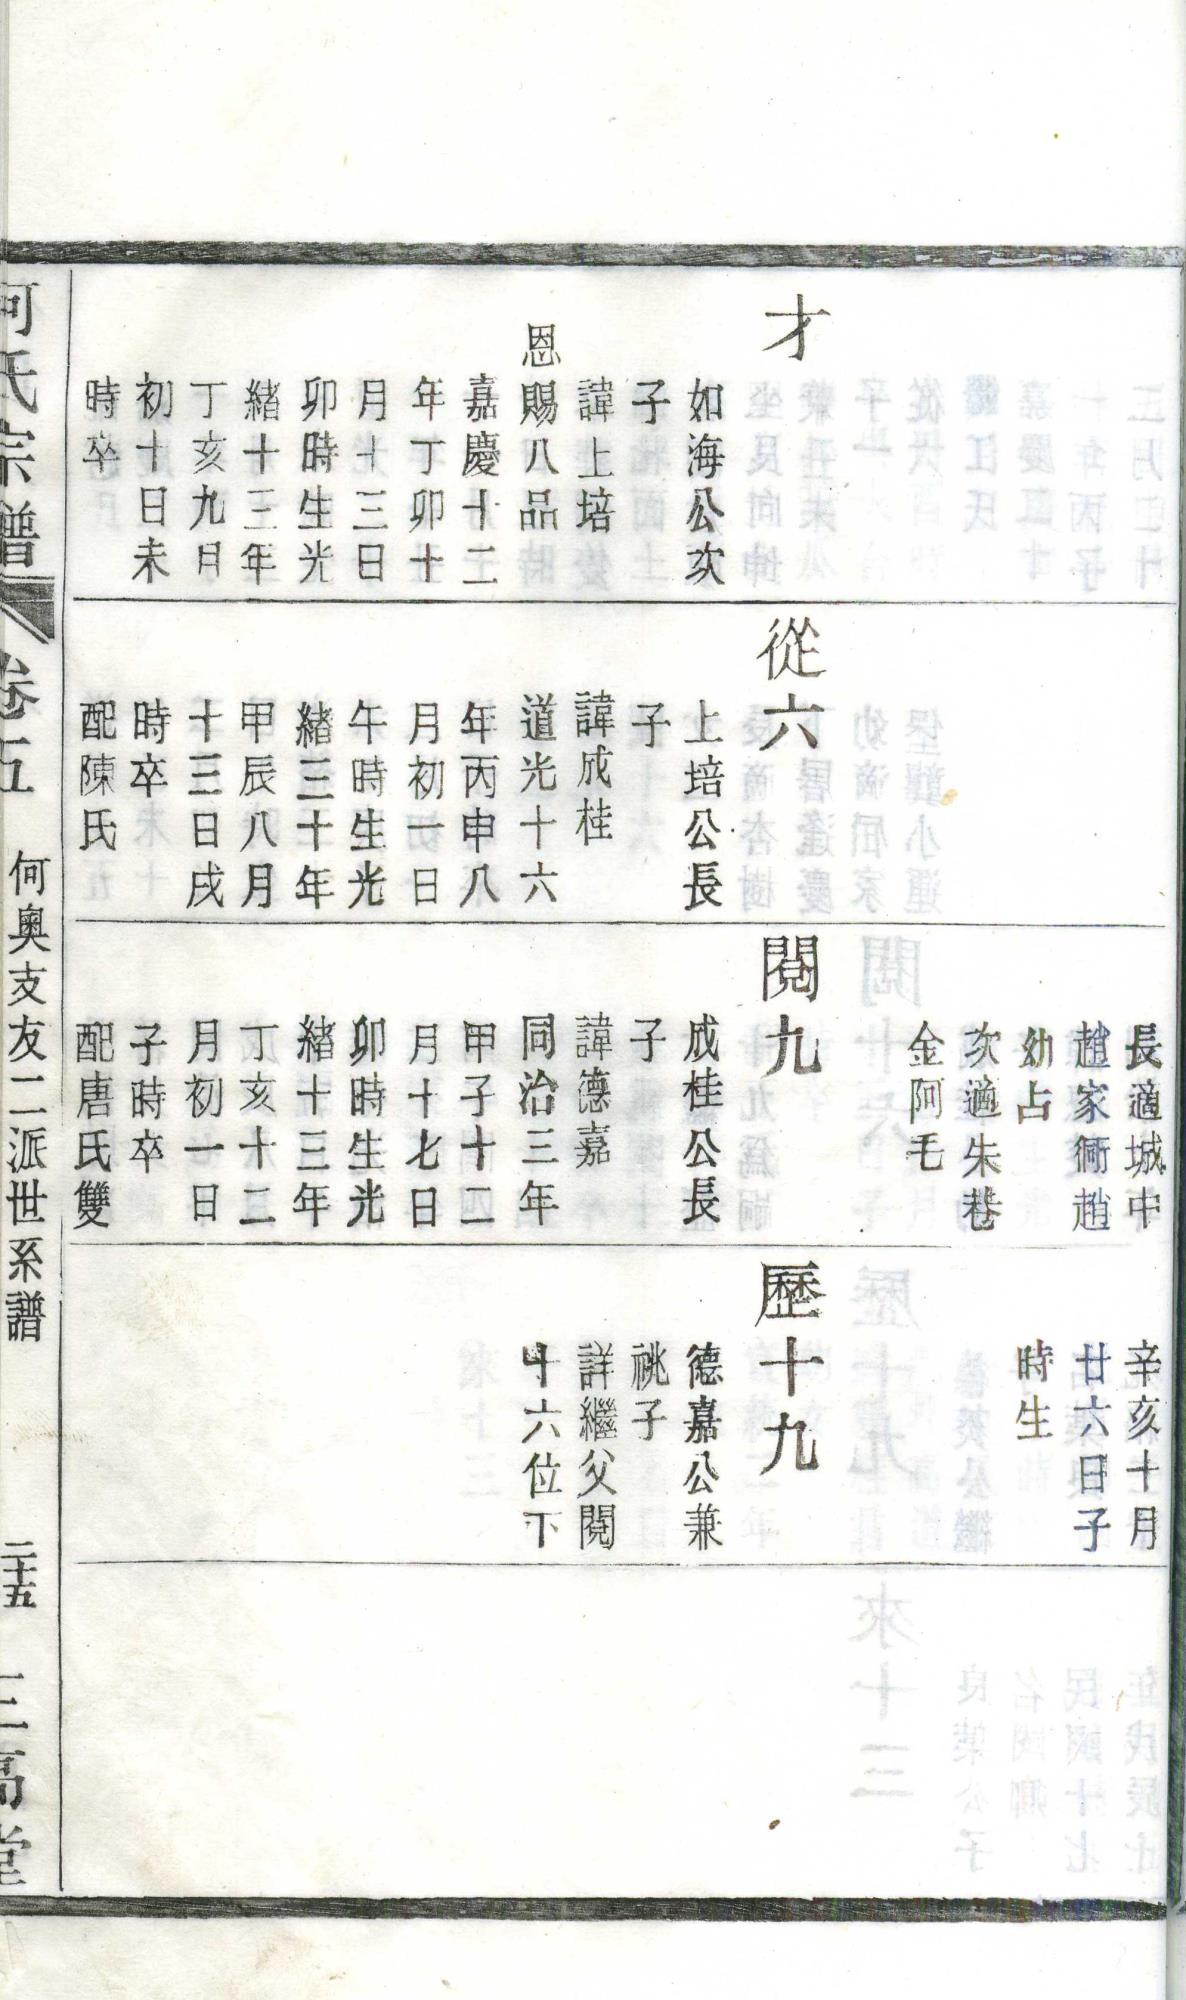 才
如海公次
子
諱上培
恩賜八品
嘉慶十二
年丁卯十
月十三日
卯時生光
緒十三年
丁亥九月
初十日未
時卒
從六
上培公長
子
諱成桂
道光十六
年丙申八
月初一日
午時生光
緒三十年
甲辰八月
十三日戌
時卒
配陳氏
長適城中
趙家衕趙
幼占
次適朱巷
金阿毛
閱九
成桂公長
子
諱德嘉
同治三年
甲子十二
月十七日
卯時生光
緒十三年
丁亥十二
月初一日
子時卒
配唐氏雙
辛亥十月
廿六日子
時生
歷十九
德嘉公兼
祧子
詳繼父閱
十六位下
何氏宗譜
卷五
何奧支友二派世系譜
二十五
三高堂